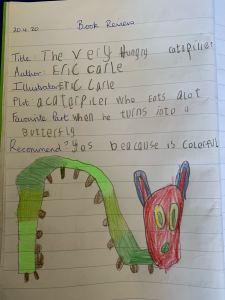 20.4.20 Book Review
Title: The very Hungry caterpiller
Author: Eric carle
Illustrator: Eric Carle
Plot: a caterpiler who eats alot
Favourite Part when he turns into a
butterfly
Recommend? Yes beacause is colorful